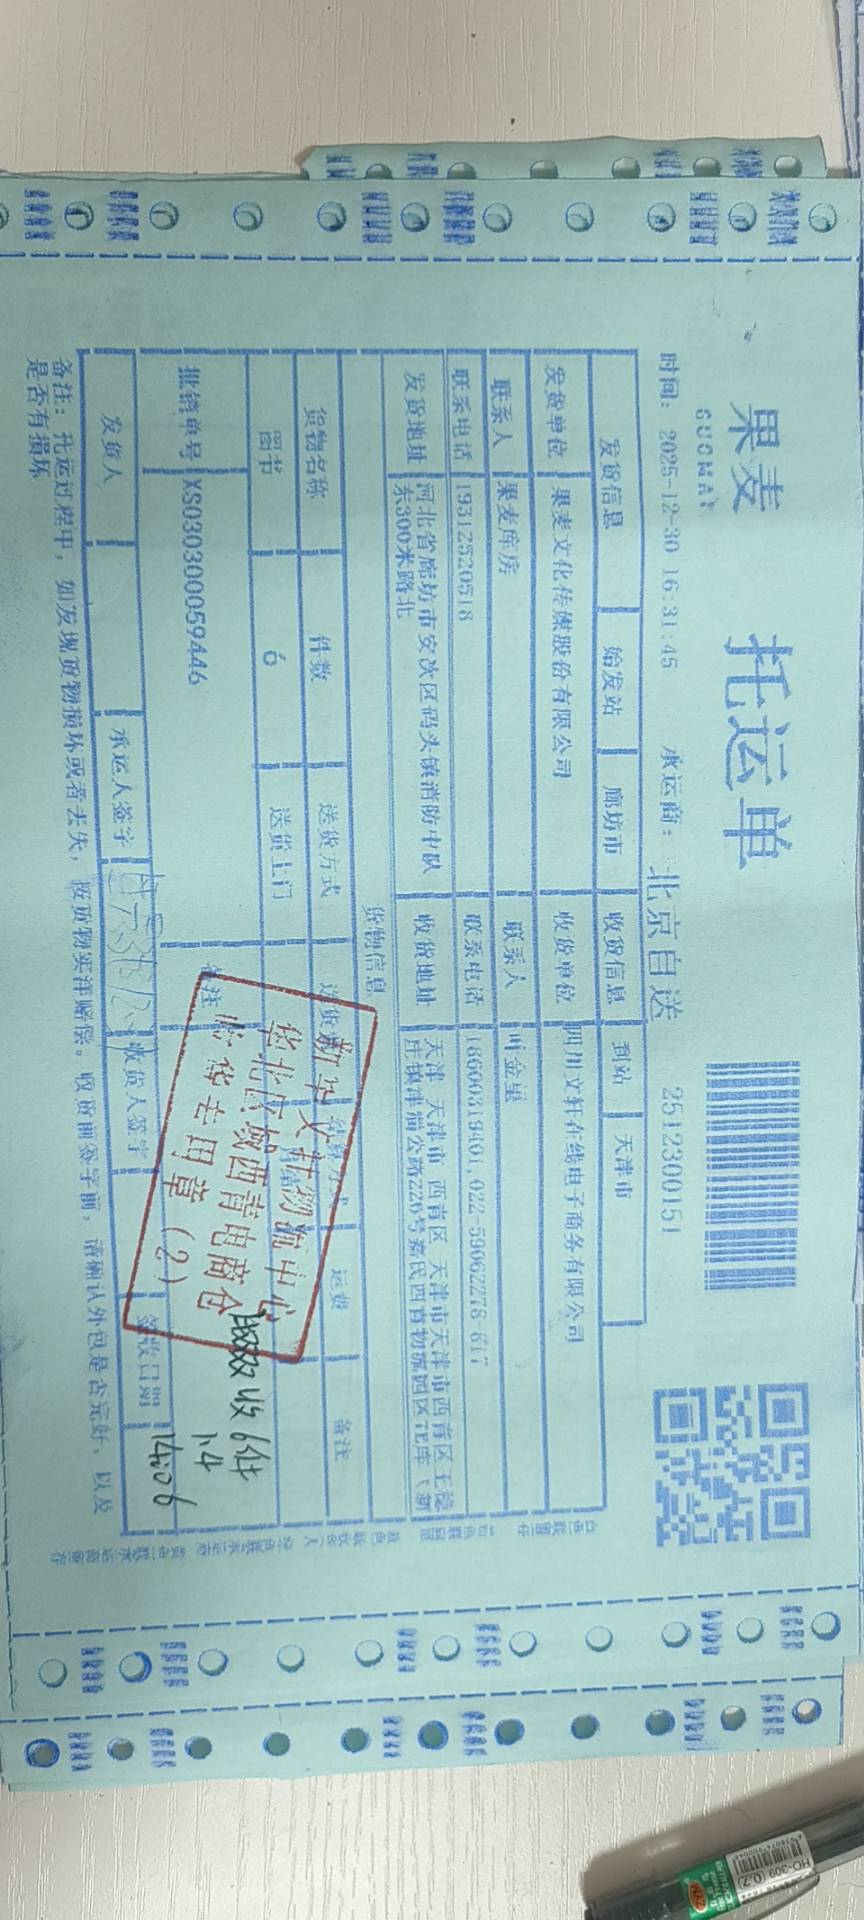 果麦
GUOMAY
托运单
时间：2025-12-30 16:31:45
承运商：北京自送
2512300151
发货信息 始发站 廊坊市 收货信息 到站 天津市
发货单位 果麦文化传媒股份有限公司 收货单位 四川文轩在线电子商务有限公司
联系人 果麦库房 联系人 叶金星
联系电话 19312520518 联系电话 18600319401,022-59062278-617
发货地址 河北省廊坊市安次区码头镇消防中队
东300米路北
收货地址 天津 天津市 西青区 天津市天津市西青区王稳
庄镇津淄公路226号嘉民西青物流园区
货物信息
货物名称 件数 送货方式 结算方式 运费 备注
图书 6 送货上门
批销单号 XS030300059446 备注
新华文轩物流中心
华北区域西青电商仓
收货专用章（2）
收6件
1.4
14:06
发货人 承运人签字 收货人签字 签收日期
备注：托运过程中，如发现货物损坏或者丢失，按货物实洋赔偿。收货前签字前，请确认外包是否完好，以及
是否有损坏